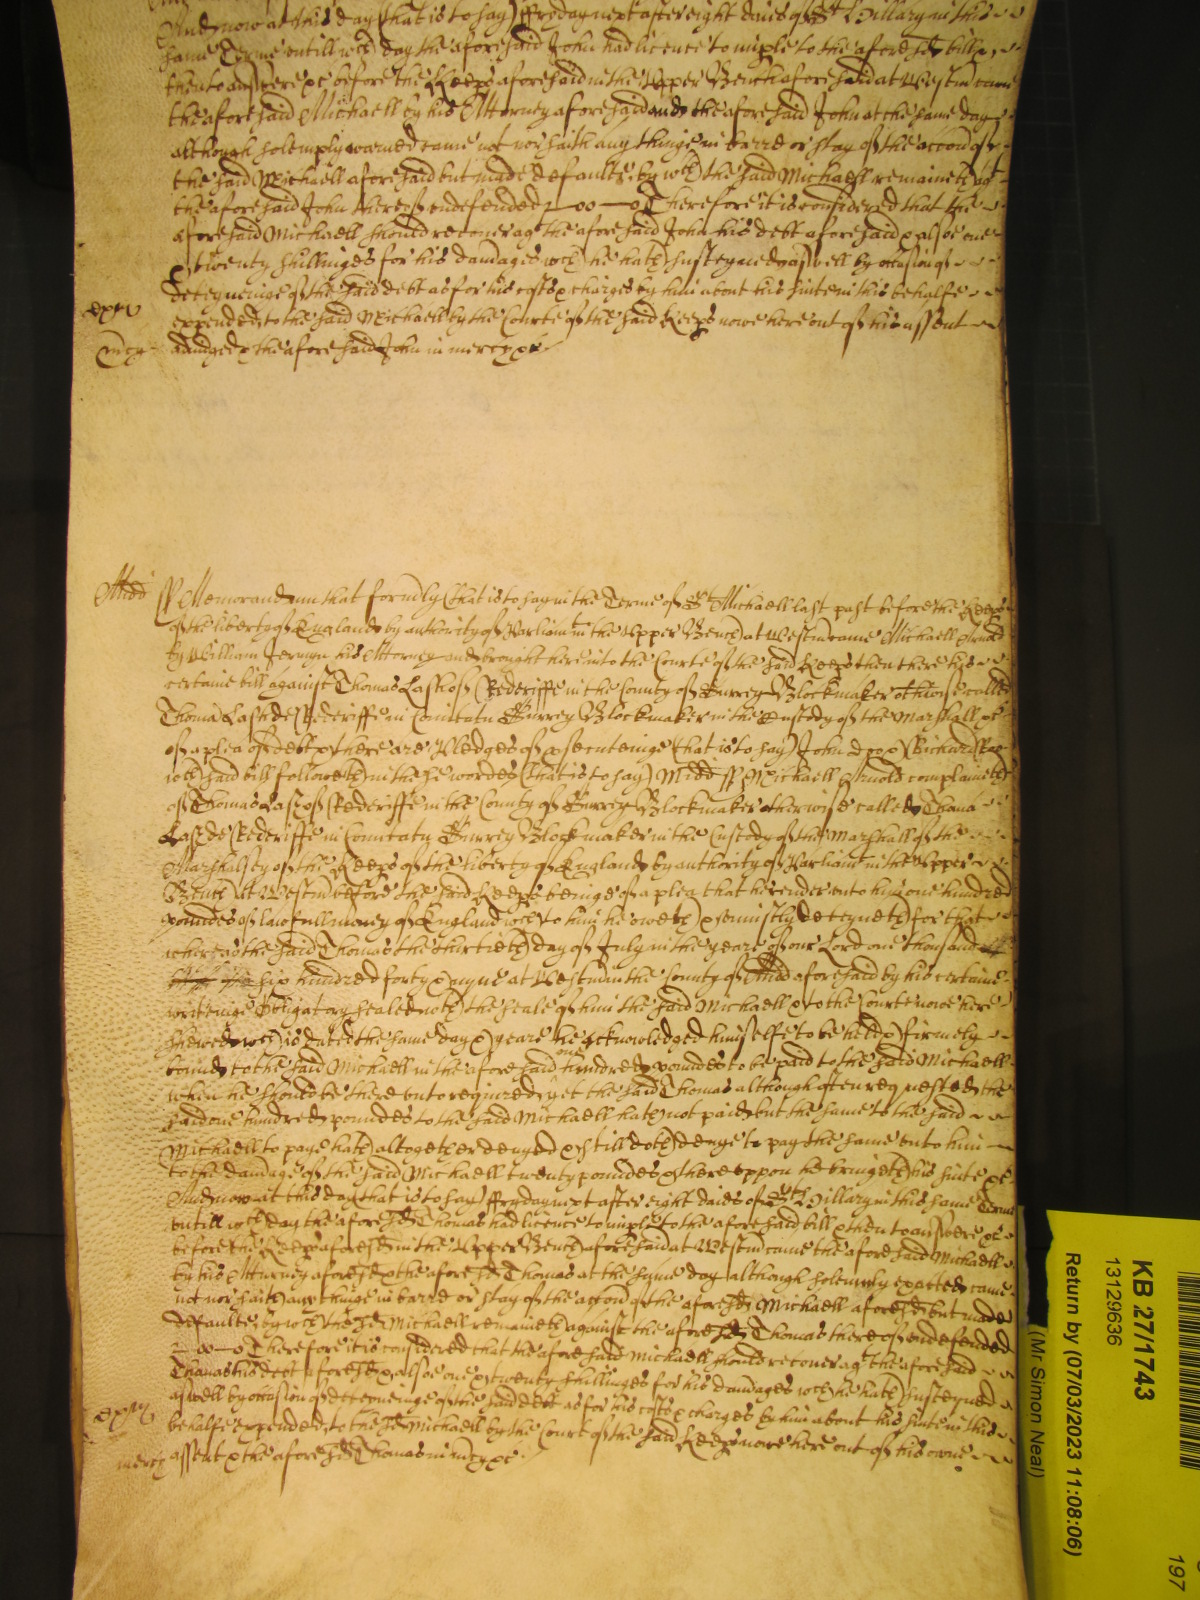 And now at this day (that is to say) ffryday next after eight daies of St Hillary in this
same Terme untill wch day the aforesaid John had licence to imple to the aforesd bill &
then to answere &c before the Keeps aforesaid in the Upper Bench aforesaid at Westm came
the aforesaid Michaell by his Attorney aforesaid and the aforesaid John at the same day
although solemply warned came not nor saith any thinge in barre or stay of the accon of
the said Michaell aforesaid but made defaulte by wch the said Michaell remaineth agt
the aforesaid John thereof undefended Therefore it is considered that the
aforesaid Michaell should recover agt the aforesaid John his debt aforesaid & alsoe one
& twenty shillinges for his damages wch he hath susteyned aswell by occasion of
deteyneinge of the said debt as for his costs & charges by him about his suite in this behalfe
expended to the said Michaell by the Courte of the said Keeps nowe here out of his assent
adiudged & the aforesaid John in mercy &c
mcy
Midd ss Memorandum that formly (that is to say in the Terme of St Michaell last past before the Keeps
of the liberty of England by authority of Parliamt in the Upper Bench at Westm came Michaell Arnold
by William Jermyn his Attorney and brought here into the Courte of the said Keeps then there his
certaine bill against Thomas Last of Rederiffe in the County of Surrey Blockmaker othwise called
Thomas Last de Rederiffe in Comitatu Surrey Blockmaker in the Custody of the Marshall &c
of a plea of debt & there are Pledges of psecuteinge (that is to say) John Doo & Richard Roo
wch said bill followeth in these wordes (that is to say) Midd ss Michaell Arnold complaineth
of Thomas Last of Rederiffe in the County of Surrey Blockmaker otherwise called Thomas
Last de Rederiffe in Comitatu Surrey Blockmaker in the Custody of the Marshall of the
Marshalsey of the Keeps of the liberty of England by authority of Parliamt in the Upper
Bench at Westm before the said Keeps beinge of a plea that he render unto him one hundred
poundes of lawfull money of England wch to him he oweth & uniustly deteyneth for that
whereas the said Thomas the thirtieth day of July in the yeare of our Lord one thousand
six hundred forty & nyne at Westm in the County of Midd aforesaid by his certaine
writeinge obligatory sealed with the seale of him the said Michaell & to the Courte nowe here
shewed wch is dated the same day & yeare he acknowledged himselfe to be held & firmely
bound to the said Michaell in the aforesaid one hundred poundes to be paid to the said Michaell
when he should be thereunto required yet the said Thomas although often requested the
said one hundred poundes to the said Michaell hath not paid but the same to the said
Michaell to paye hath altogether denyed & still doth denye to pay the same unto him
to the damage of the said Michaell twenty poundes & thereuppon he bringeth his suite &c
And now at this day that is to say) ffryday next after eight daies of St Hillary in this same Terme
untill wch day the aforesd Thomas had licence to imple to the aforesaid bill & then to answere &c
before the Keeps aforesd in the Upper Bench aforesaid at Westm came the aforesaid Michaell
by his Atturney aforesd & the aforesd Thomas at the same day although solemnly exacted came
not nor saith any thinge in barre or stay of the accon of the aforesd Michaell aforesd but made
defaulte by wch the sd Michaell remaineth against the aforesd Thomas thereof undefended
Therefore it is considered that the aforesaid Michaell should recover agt the aforesaid
Thomas his debt aforesd & alsoe one & twenty shillinges for his damages wch he hath susteyned
aswell by occasion of deteyneinge of the said debt as for his costs & charges by him about his suite in this
behalfe expended to the sd Michaell by the Court of the said Keeps nowe here out of his owne
mercy assent & the aforesd Thomas in mcy &c
KB 27/1743
13129636
Return by (07/03/2023 11:08:06)
(Mr Simon Neal)
197